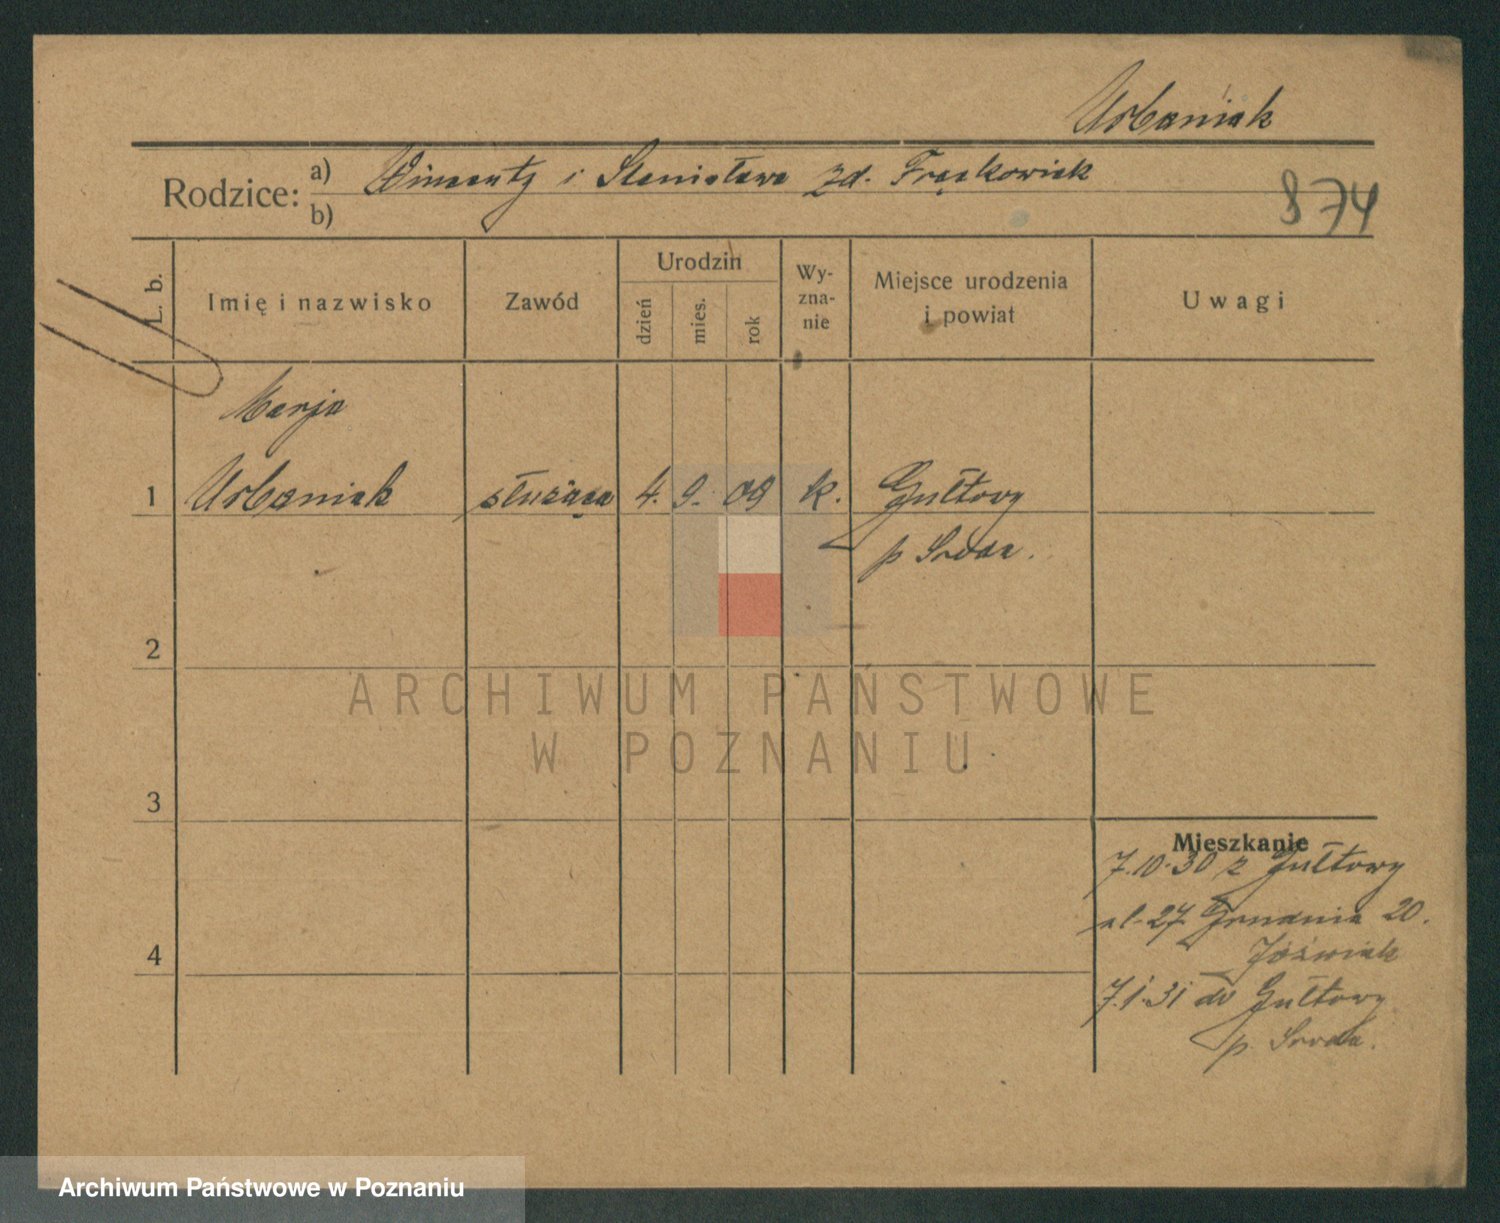 Urbaniak
Rodzice: a) Wincenty i Stanisława zd. Frąckowiak
b)
874
L. b.
Imię i nazwisko
Zawód
Urodzin
dzień
mies.
rok
Wy-
zna-
nie
Miejsce urodzenia
i powiat
Uwagi
Marja
1 Urbaniak służąca 4. 9. 09 k. Gułtowy
p Sroda.
2
ARCHIWUM PAŃSTWOWE
W POZNANIU
3
Mieszkanie
7.10.30 z Gułtowy
ul. 27 Grudnia 20.
4
Jóźwiak
7.1.31 do Gułtowy
p. Sroda.
Archiwum Państwowe w Poznaniu